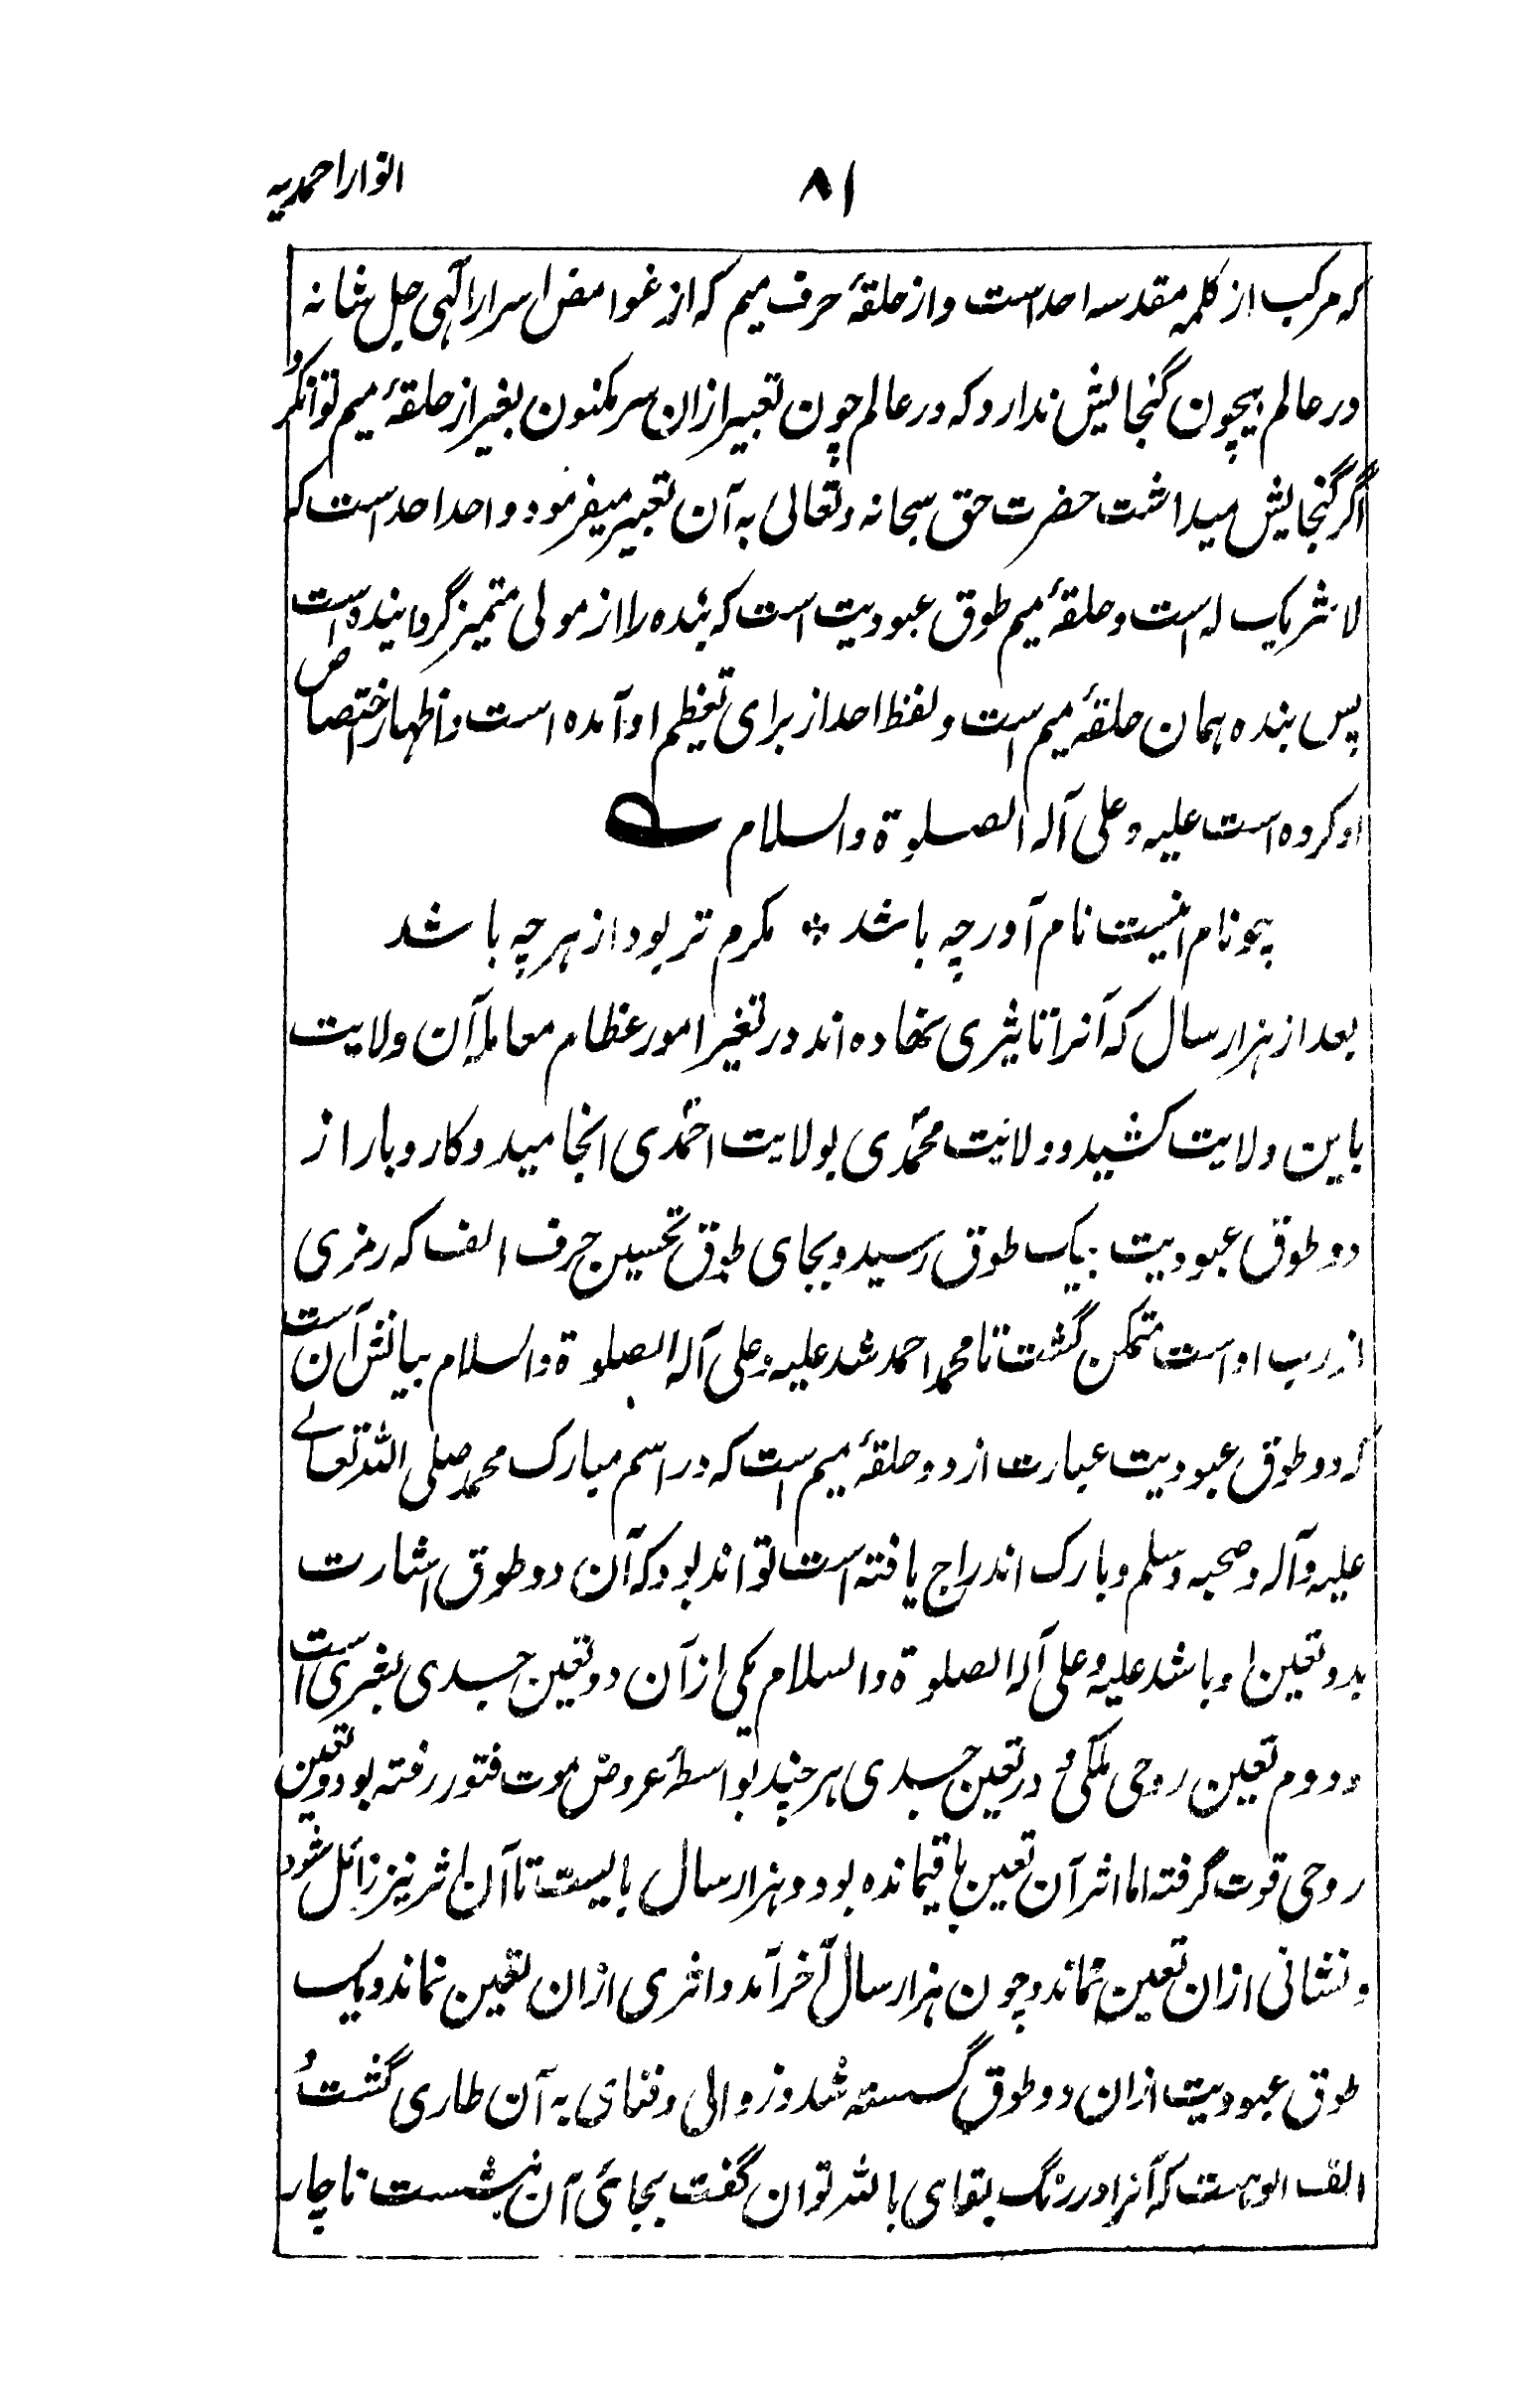 انوار احمدیہ
۸۱
که مرکب از کلمه مقدسه احد است و از حلقهٔ حرف میم که از غوامض اسرار الٰهی جل شانه
در عالم بیچون گنجایش ندارد که در عالم چون تعبیر ازان سر مکنون بغیر از حلقهٔ میم توان کرد
اگر گنجایش میداشت حضرت حق سبحانه و تعالی به آن تعبیر میفرمود و احد احد است که
لا شریک له است و حلقهٔ میم طوق عبودیت است که بنده را از مولی متمیز گردانیده است
پس بنده همان حلقهٔ میم است و لفظ احد از برای تعظیم او آمده است و اظهار اختصاص
او کرده است علیه و علی آله الصلوة والسلام
چو نام اینست نام آور چه باشد * مکرم تر بود از هر چه باشد
بعد از هزار سال که آنرا تاثیری نهاده اند در تغیر امور عظام معامله آن ولایت
باین ولایت کشید و ولایت محمّدی بولایت احمدی انجامید و کار و بار از
دو طوق عبودیت بیک طوق رسید و بجای طوق نخستین حرف الف که رمزی
از رب او است متمکن گشت تا محمد احمد شد علیه و علی آله الصلوة والسلام بیانش آن است
که دو طوق عبودیت عبارت از دو حلقهٔ میم است که در اسم مبارک محمد صلی الله تعالے
علیه و آله و صحبه وسلم و بارک اندراج یافته است تواند بود که آن دو طوق اشارت
بدو تعین او باشد علیه و علی آله الصلوة والسلام یکی ازآن دو تعین جسدی بشری است
و دوم تعین روحی ملکی و در تعین جسدی هر چند بواسطهٔ عروض موت فتور رفته بود و تعین
روحی قوت گرفته اما اثر آن تعین باقیمانده بود و هزار سال بایست تا آن اثر نیز زائل شود
و نشانی ازان تعین نماند و چون هزار سال آخر آمد و اثری ازان تعین نماند و یک
طوق عبودیت ازان دو طوق گسسته شد و زوالی و فنای به آن طاری گشت و
الف الوهیت که آنرا در رنگ بقای بالله توان گفت بجائ آن نشست ناچار